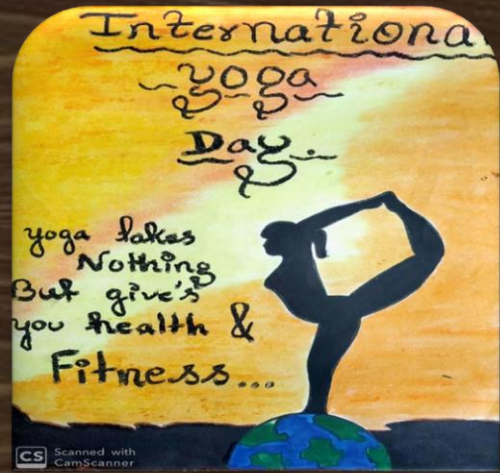 Internationa
yoga
Day.
yoga takes
Nothing
But give's
you health &
Fitness...
CS Scanned with
CamScanner